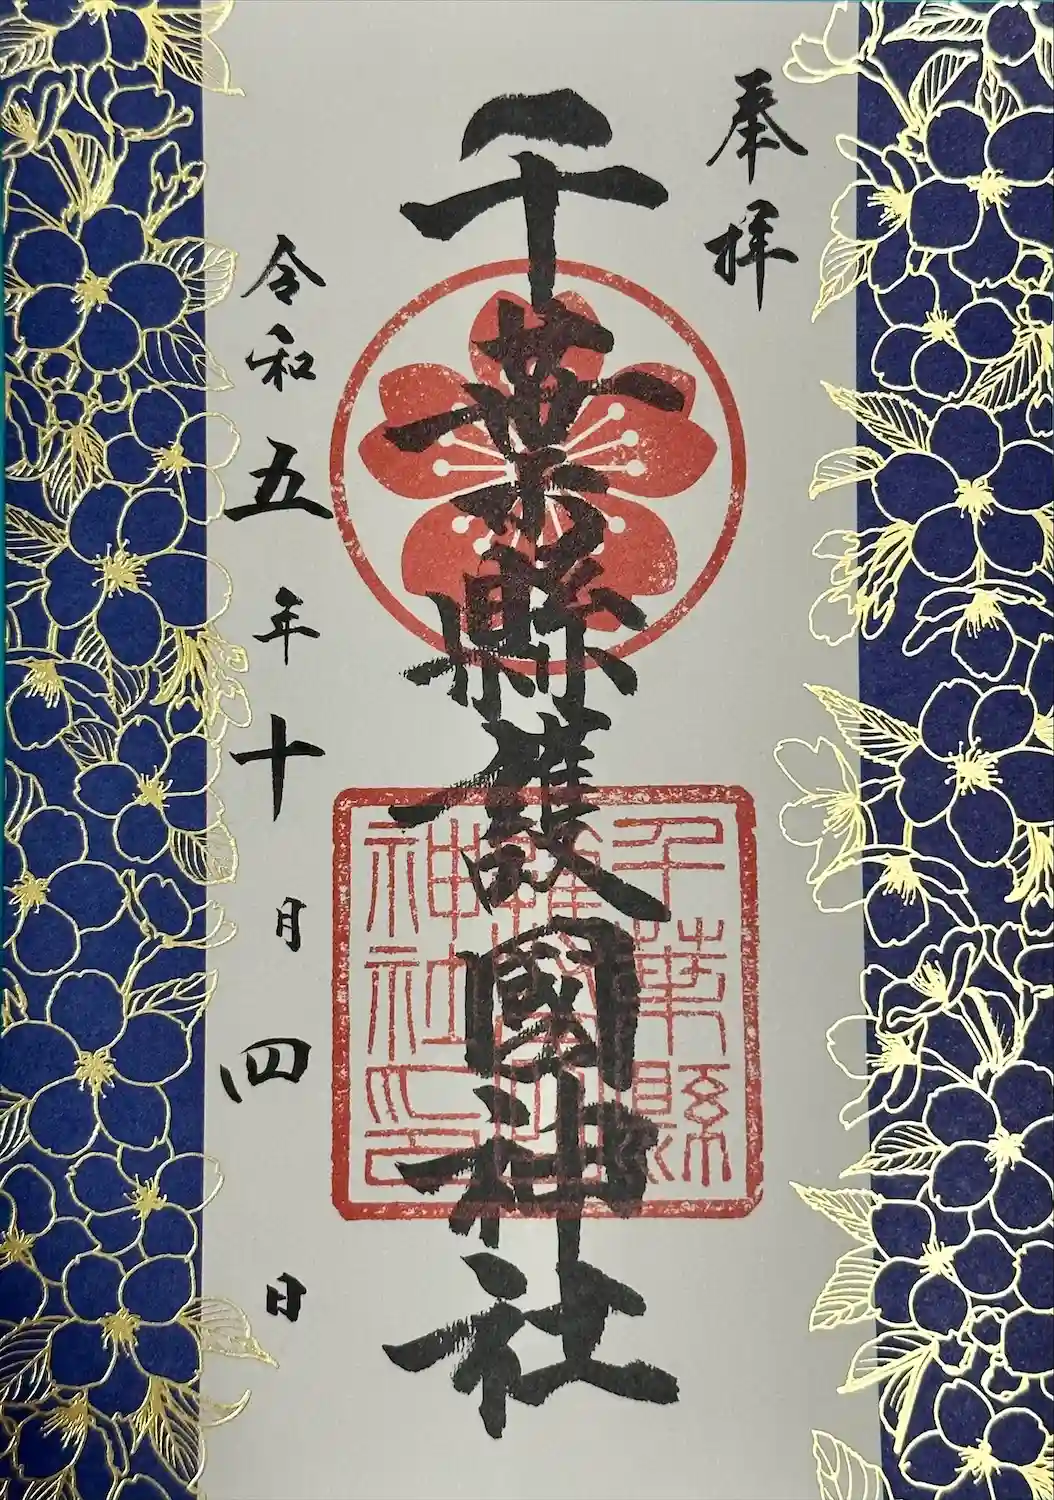 奉拝
千葉縣護國神社
令和五年十月四日
千葉縣
護國神社
神社印